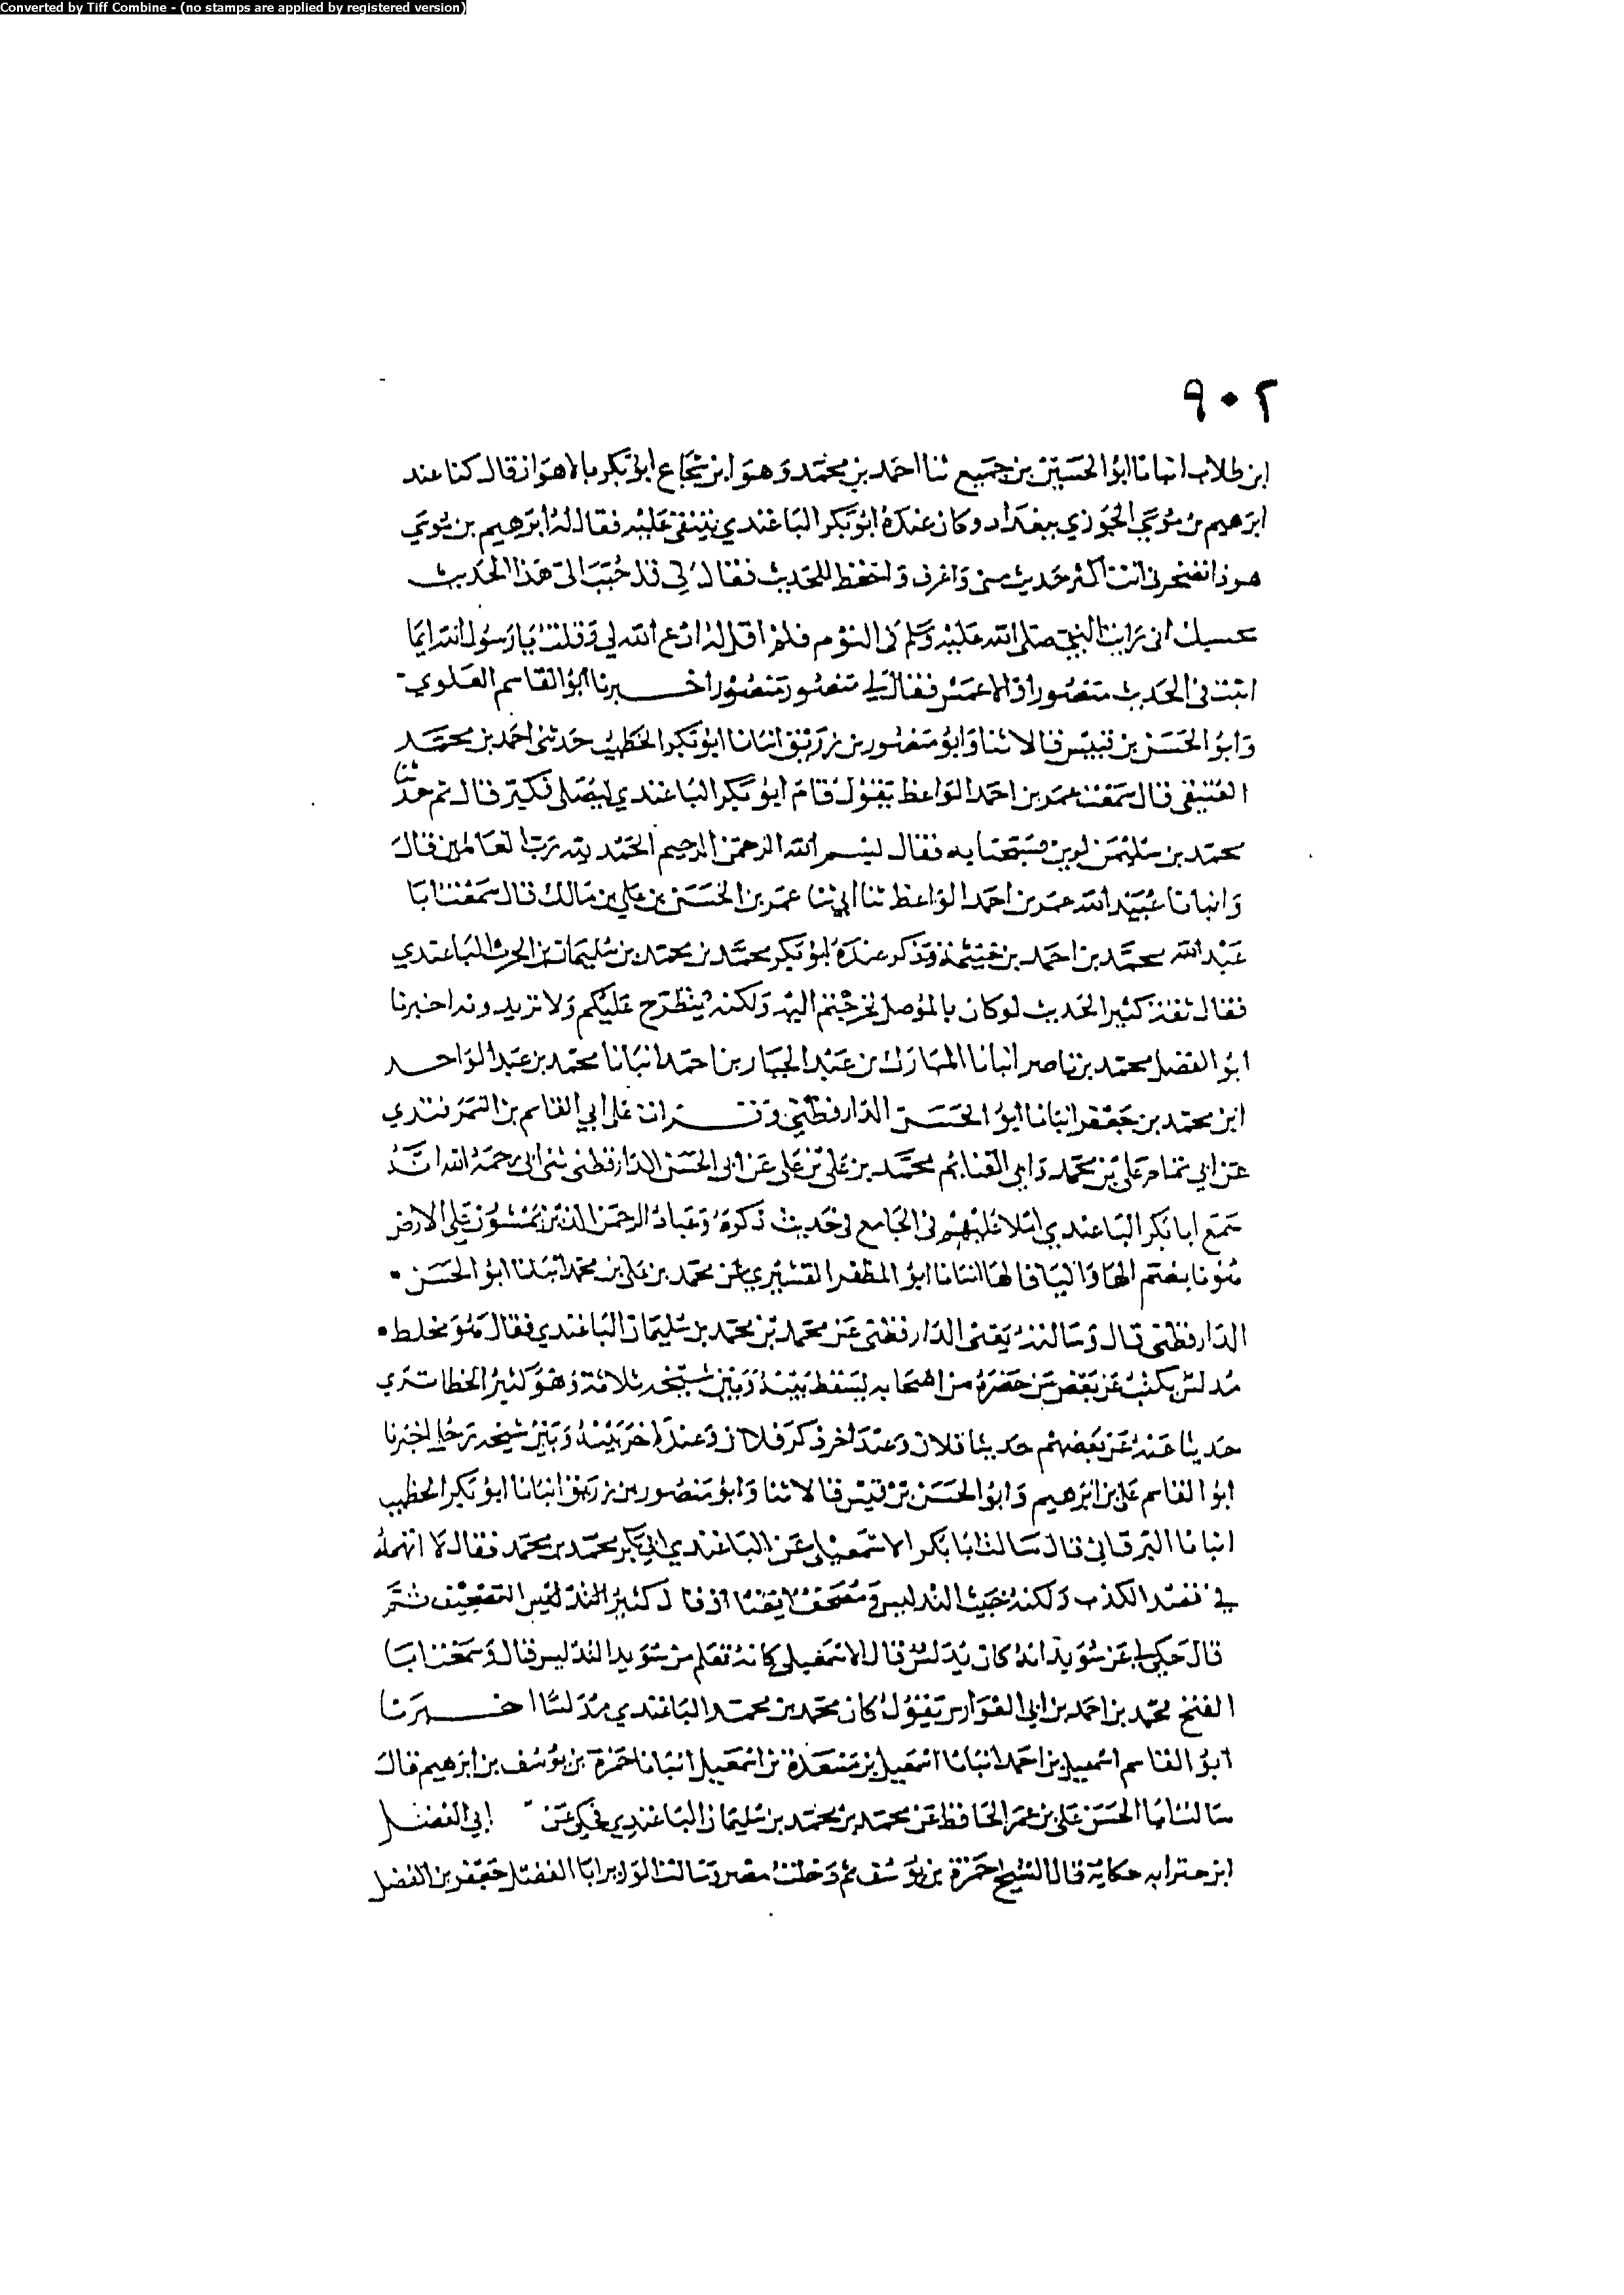 Converted by Tiff Combine - (no stamps are applied by registered version)
٩٠٢
ابن طلاب انبانا ابو الحسين بن جميع ثنا احمد بن محمد وهو ابن شجاع ابو بكر بالاهواز قال كنا عند
ابرهيم بن موسى الجوزي ببغداد وكان عنده ابو بكر الباغندي ينتقي عليه فقال له ابرهيم بن موسى
هوذا تضجرني انت اكثر حديث مني واعرف واحفظ للحديث فقال لي قد حُبّب الي هذا الحديث
حسبك اني رايت النبي صلى الله عليه وسلم في النوم فلم اقل له ادع الله لي وقلت يا رسول الله ايما
اثبت في الحديث منصور او الاعمش فقال لي منصور منصور اخبرنا ابو القاسم العلوي
وابو الحسن بن قبيس قالا ثنا وابو منصور بن زريق انبانا ابو بكر الخطيب حدثني احمد بن محمد
العتيقي قال سمعت عمر بن احمد الواعظ يقول قام ابو بكر الباغندي ليصلي فكبر قال ثم حدثنا
محمد بن سليمن لوين فسبحنا به فقال بسم الله الرحمن الرحيم الحمد لله رب العالمين قال
وانبانا عبيد الله عمر بن احمد الواعظ ثنا ابي ثنا عمر بن الحسن بن علي بن مالك قال سمعت ابا
عبد الله محمد بن احمد بن خيثمة وذكر عنده ابو بكر محمد بن محمد بن سليمان بن الحرث الباغندي
فقال ثقة كثير الحديث لو كان بالموصل لخرجتم اليه ولكنه ينطرح عليكم ولا تريدونه اخبرنا
ابو الفضل محمد بن ناصر انبانا المبارك بن عبد الجبار بن احمد انبانا محمد بن عبد الواحد
ابن محمد بن جعفر انبانا ابو الحسن الدارقطني وقرات على ابي القاسم بن السمرقندي
عن ابي تمام علي بن محمد وابي الغنايم محمد بن علي بن علي عن ابي الحسن الدارقطني ثنى ابي رحمه الله انه
سمع ابا بكر الباغندي املا عليهم في الجامع في حديث ذكره وعباد الرحمن الذين يمشون على الارض
هُونا بضم الها واليا قالها انبانا ابو المظفر القشيري عن محمد بن علي بن محمد انبانا ابو الحسن
الدارقطني قال وسالته يعني الدارقطني عن محمد بن محمد بن سليمان الباغندي فقال هو مخلط
مدلس يكتب عن بعض من حضره من اصحابه يسقط بينه وبين شيخه ثلاثة وهو كثير الخطا
حديثا عنه عن بعضهم حديثا فلان وعند اخر ذكر فلان وعند اخر بينه وبين شيخه رجل اخبرنا
ابو القاسم علي بن ابرهيم وابو الحسن بن قبيس قالا ثنا وابو منصور بن زريق انبانا ابو بكر الخطيب
انبانا البرقاني قال سالت ابا بكر الاسمعيلي عن الباغندي ابي بكر محمد بن محمد فقال لا اتهمه
في قصد الكذب ولكنه خبيث التدليس ومصحف ايضا او قال كثير التصحيف ثم
قال حكي عن سويد انه كان يدلس قال الاسمعيلي كانه تعلم من سويد التدليس قال وسمعت ابا
الفتح محمد بن احمد بن ابي الفوارس يقول كان محمد بن محمد الباغندي مدلسا اخبرنا
ابو القاسم اسمعيل بن احمد انبانا اسمعيل بن مسعدة بن اسمعيل انبانا حمزة بن يوسف بن ابرهيم قال
سالت ابا الحسن علي بن عمر الحافظ عن محمد بن محمد بن سليمان الباغندي فحكى عن ابي الفضل
ابن حنزابه حكاية قال الشيخ حمزة بن يوسف ثم دخلت مصر وسالت الوزير ابا الفضل جعفر بن الفضل